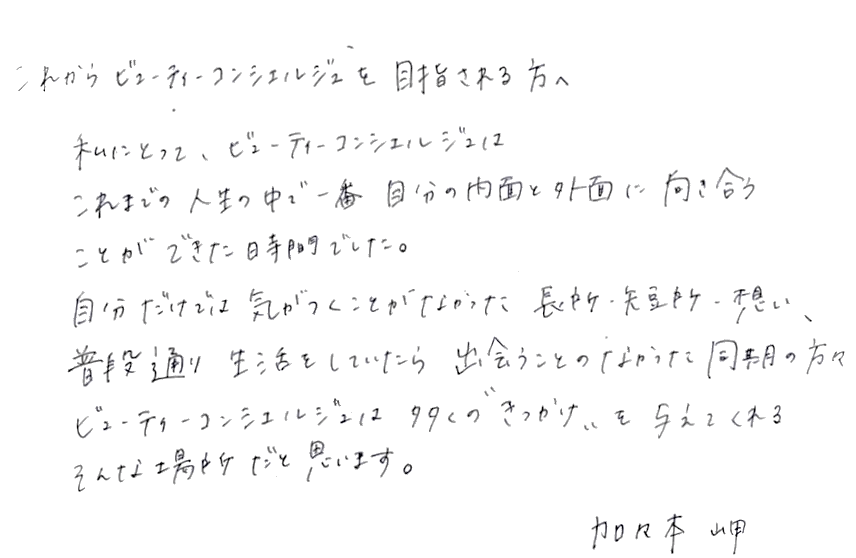 これからビューティーコンシェルジュを目指される方へ
私にとって、ビューティーコンシェルジュは
これまでの人生の中で一番 自分の内面と外面に向き合う
ことができた時間でした。
自分だけでは気がつくことがなかった 長所・短所・想い、
普段通り 生活をしていたら 出会うことのなかった同期の方々
ビューティーコンシェルジュは 多くの"きっかけ"を与えてくれる
そんな場所だと思います。
加々本 岬